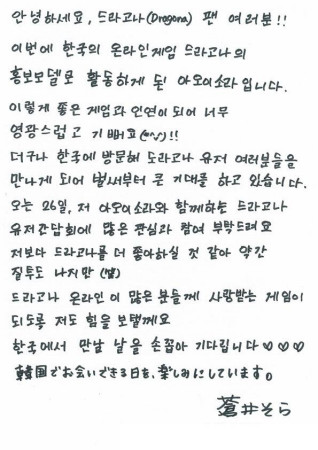 안녕하세요, 드라고나(Dragona) 팬 여러분!!
이번에 한국의 온라인게임 드라고나의
홍보모델로 활동하게 된! 아오이소라 입니다.
이렇게 좋은 게임과 인연이 되어 너무
영광스럽고 기뻐요(^^)!!
더구나 한국에 방문해 드라고나 유저 여러분들을
만나게 되어 벌써부터 큰 기대를 하고 있습니다.
오는 26일, 저 아오이소라와 함께하는 드라고나
유저간담회에 많은 관심과 참여 부탁드려요
저보다 드라고나를 더 좋아하실 것 같아 약간
질투도 나지만 (笑)
드라고나 온라인이 많은 분들께 사랑받는 게임이
되도록 저도 힘을 보탤께요
한국에서 만날 날을 손꼽아 기다립니다♡♡♡
韓国でお会いできる日を、楽しみにしています。
蒼井そら